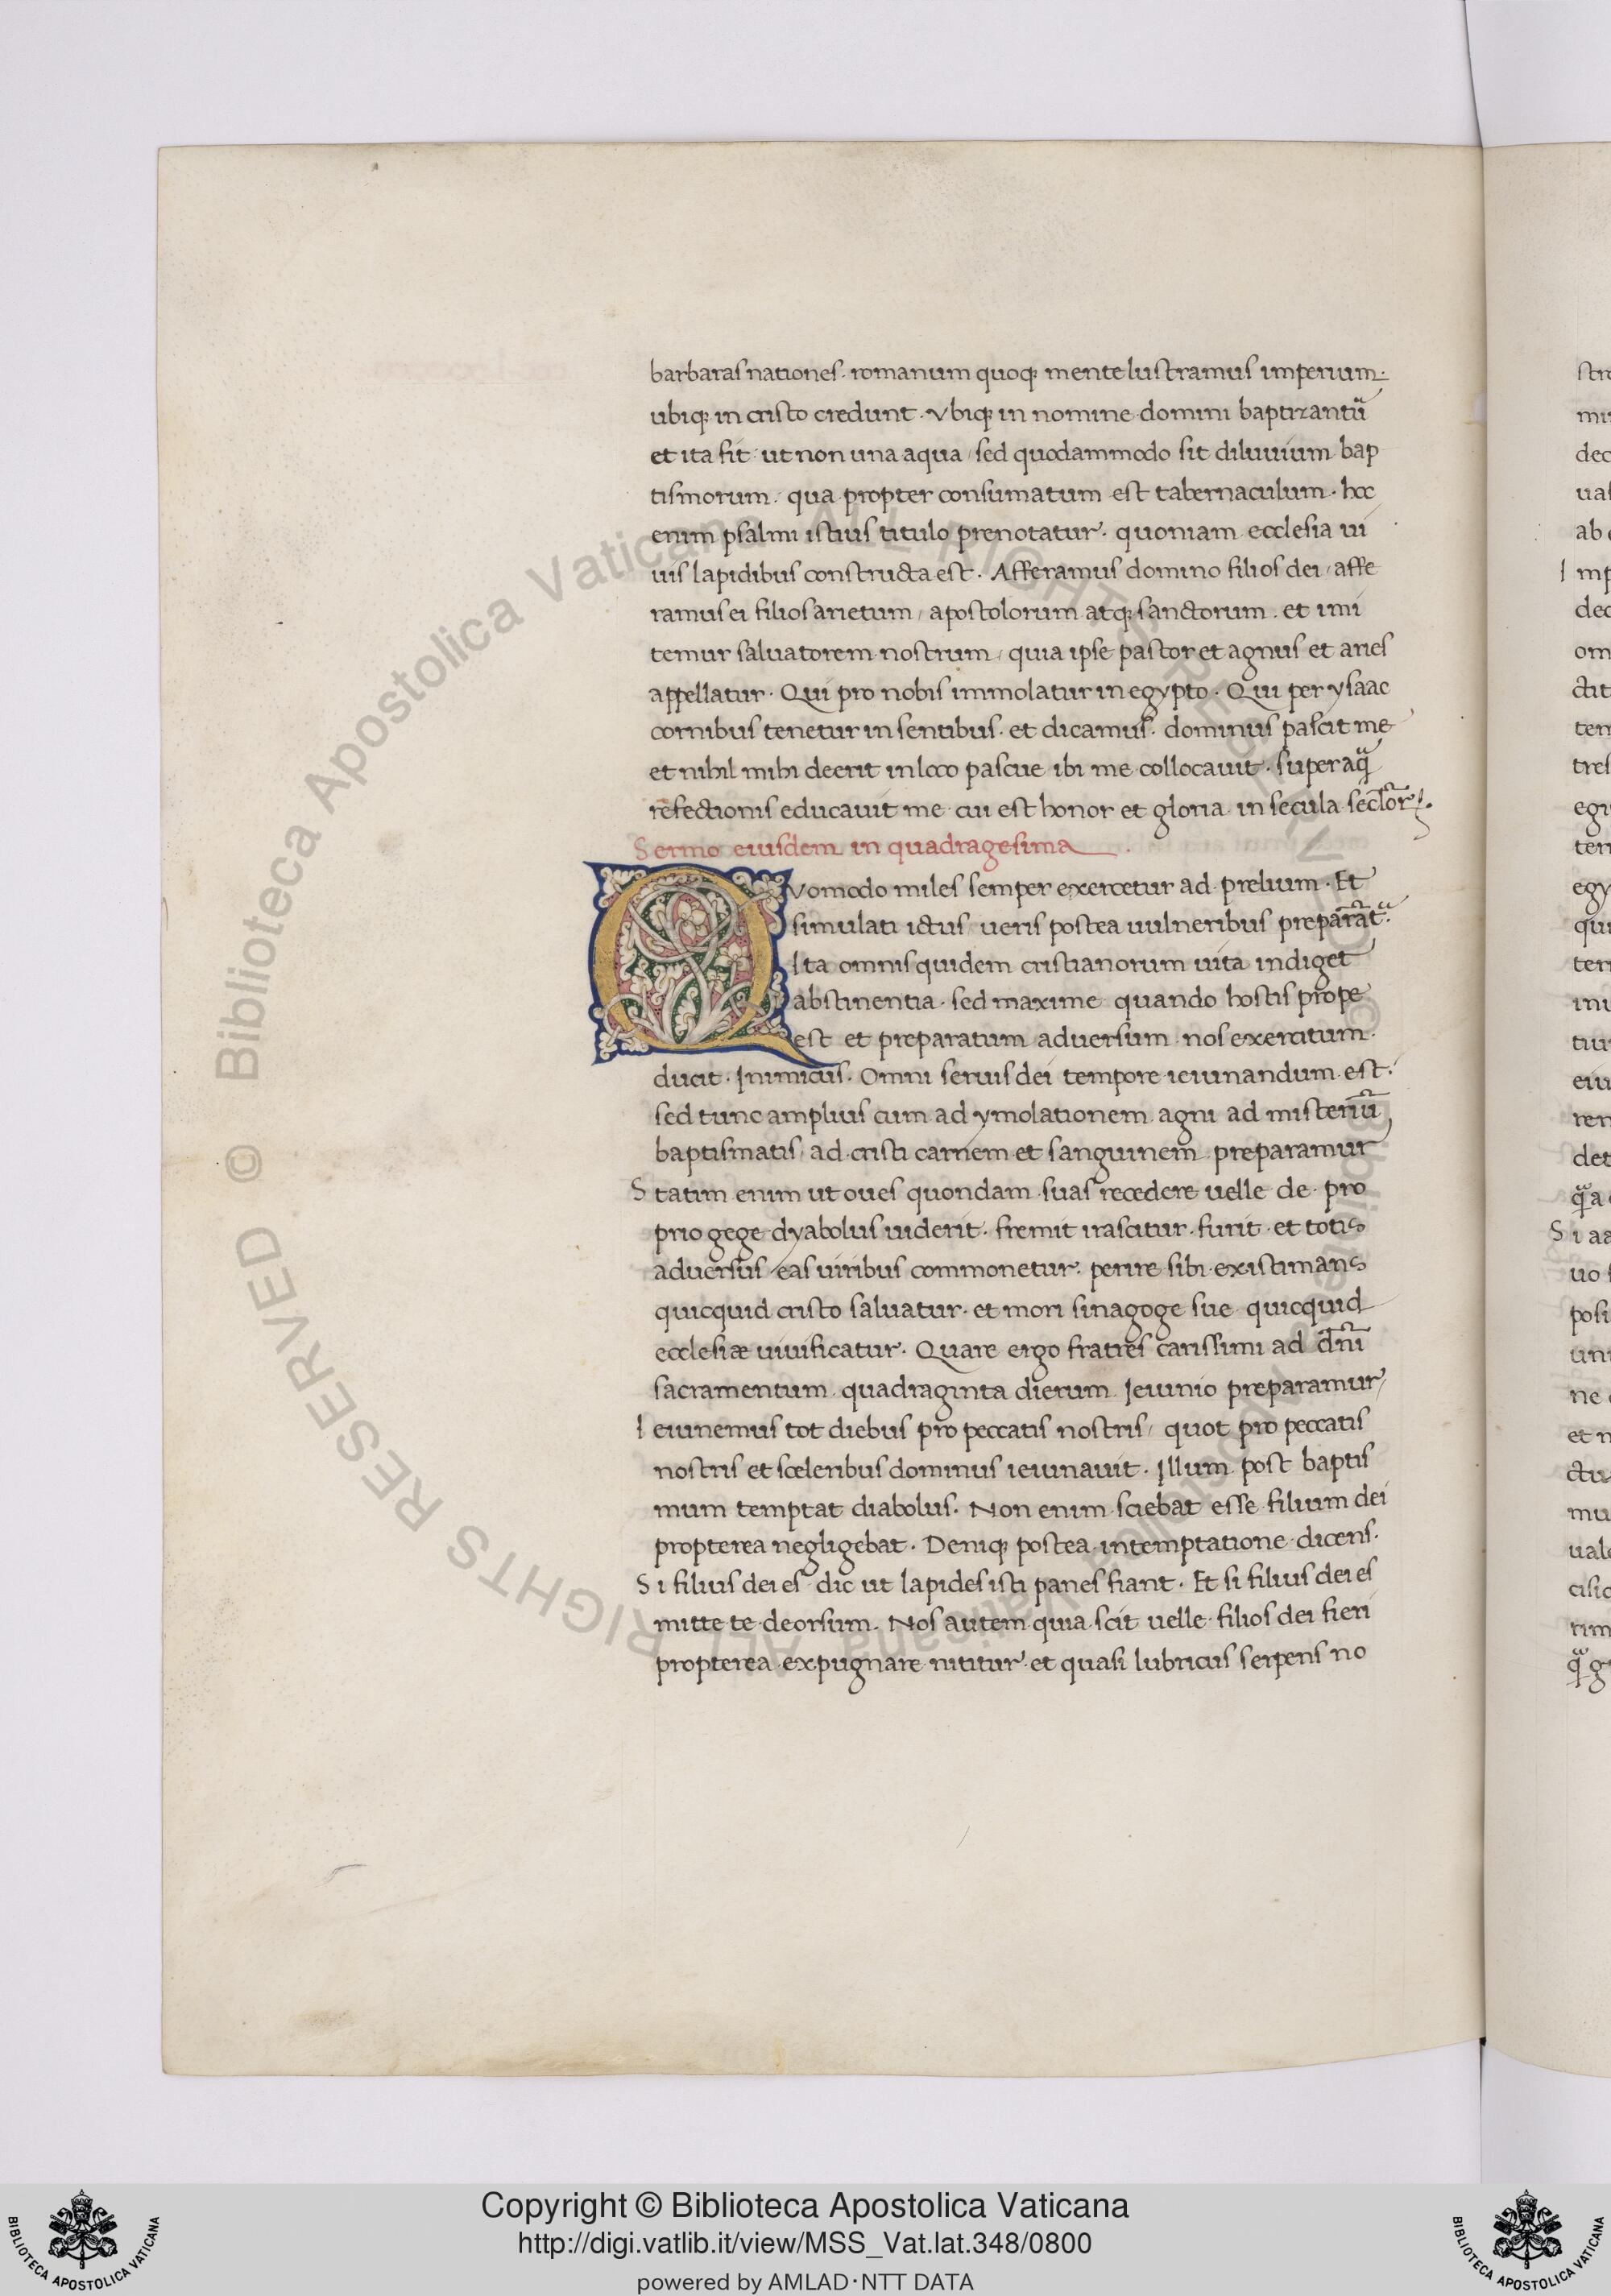 barbaras nationes. romanum quoq; mente lustramus imperium.
ubiq; in cristo credunt. Vbiq; in nomine domini baptizantũ
et ita fit: ut non una aqua, sed quodammodo sit diluuium bap
tismorum. qua propter consumatum est tabernaculum. hoc
enim psalmi istius titulo prenotatur. quoniam ecclesia ui
uis lapidibus constructa est. Afferamus domino filios dei, affe
ramus ei filios arietum, apostolorum atq; sanctorum. et imi
temur saluatorem nostrum, quia ipse pastor et agnus et aries
appellatur. Qui pro nobis immolatur in egypto. Qui per ysaac
cornibus tenetur in sentibus. et dicamus. dominus pascit me
et nihil mihi deerit in loco pascue ibi me collocauit. super aq̃
refectionis educauit me. cui est honor et gloria in secula seclor̃.
Sermo eiusdem in quadragesima.
Quomodo miles semper exercetur ad prelium. Et
simulati ictus ueris postea uulneribus preparãt.
Ita omnis quidem cristianorum uita indiget
abstinentia. sed maxime quando hostis prope
est et preparatum aduersum nos exercitum
ducit. Inimicus. Omni seruis dei tempore ieiunandum est.
sed tunc amplius cum ad ymolationem agni ad misteriũ
baptismatis, ad cristi carnem et sanguinem preparamur
Statim enim ut oues quondam suas recedere uelle de pro
prio gege dyabolus uiderit. fremit irascitur. furit. et totis
aduersus eas uiribus commonetur. perire sibi existimans
quicquid cristo saluatur. et mori sinagoge sue quicquid
ecclesiæ uiuificatur. Quare ergo fratres carissimi ad dñi
sacramentum quadraginta dierum Ieiunio preparamur,
Ieiunemus tot diebus pro peccatis nostris, quot pro peccatis
nostris et sceleribus dominus ieiunauit. Illum post baptis
mum temptat diabolus. Non enim sciebat esse filium dei
propterea negligebat. Deniq; postea in temptatione dicens.
Si filius dei es dic ut lapides isti panes fiant. Et si filius dei es
mitte te deorsum. Nos autem quia scit uelle filios dei fieri
propterea expugnare nititur et quasi lubricus serpens no
Copyright © Biblioteca Apostolica Vaticana
http://digi.vatlib.it/view/MSS_Vat.lat.348/0800
powered by AMLAD·NTT DATA
BIBLIOTECA APOSTOLICA VATICANA
BIBLIOTECA APOSTOLICA VATICANA
© Biblioteca Apostolica Vaticana ALL RIGHTS RESERVED
© Biblioteca Apostolica Vaticana ALL RIGHTS RESERVED